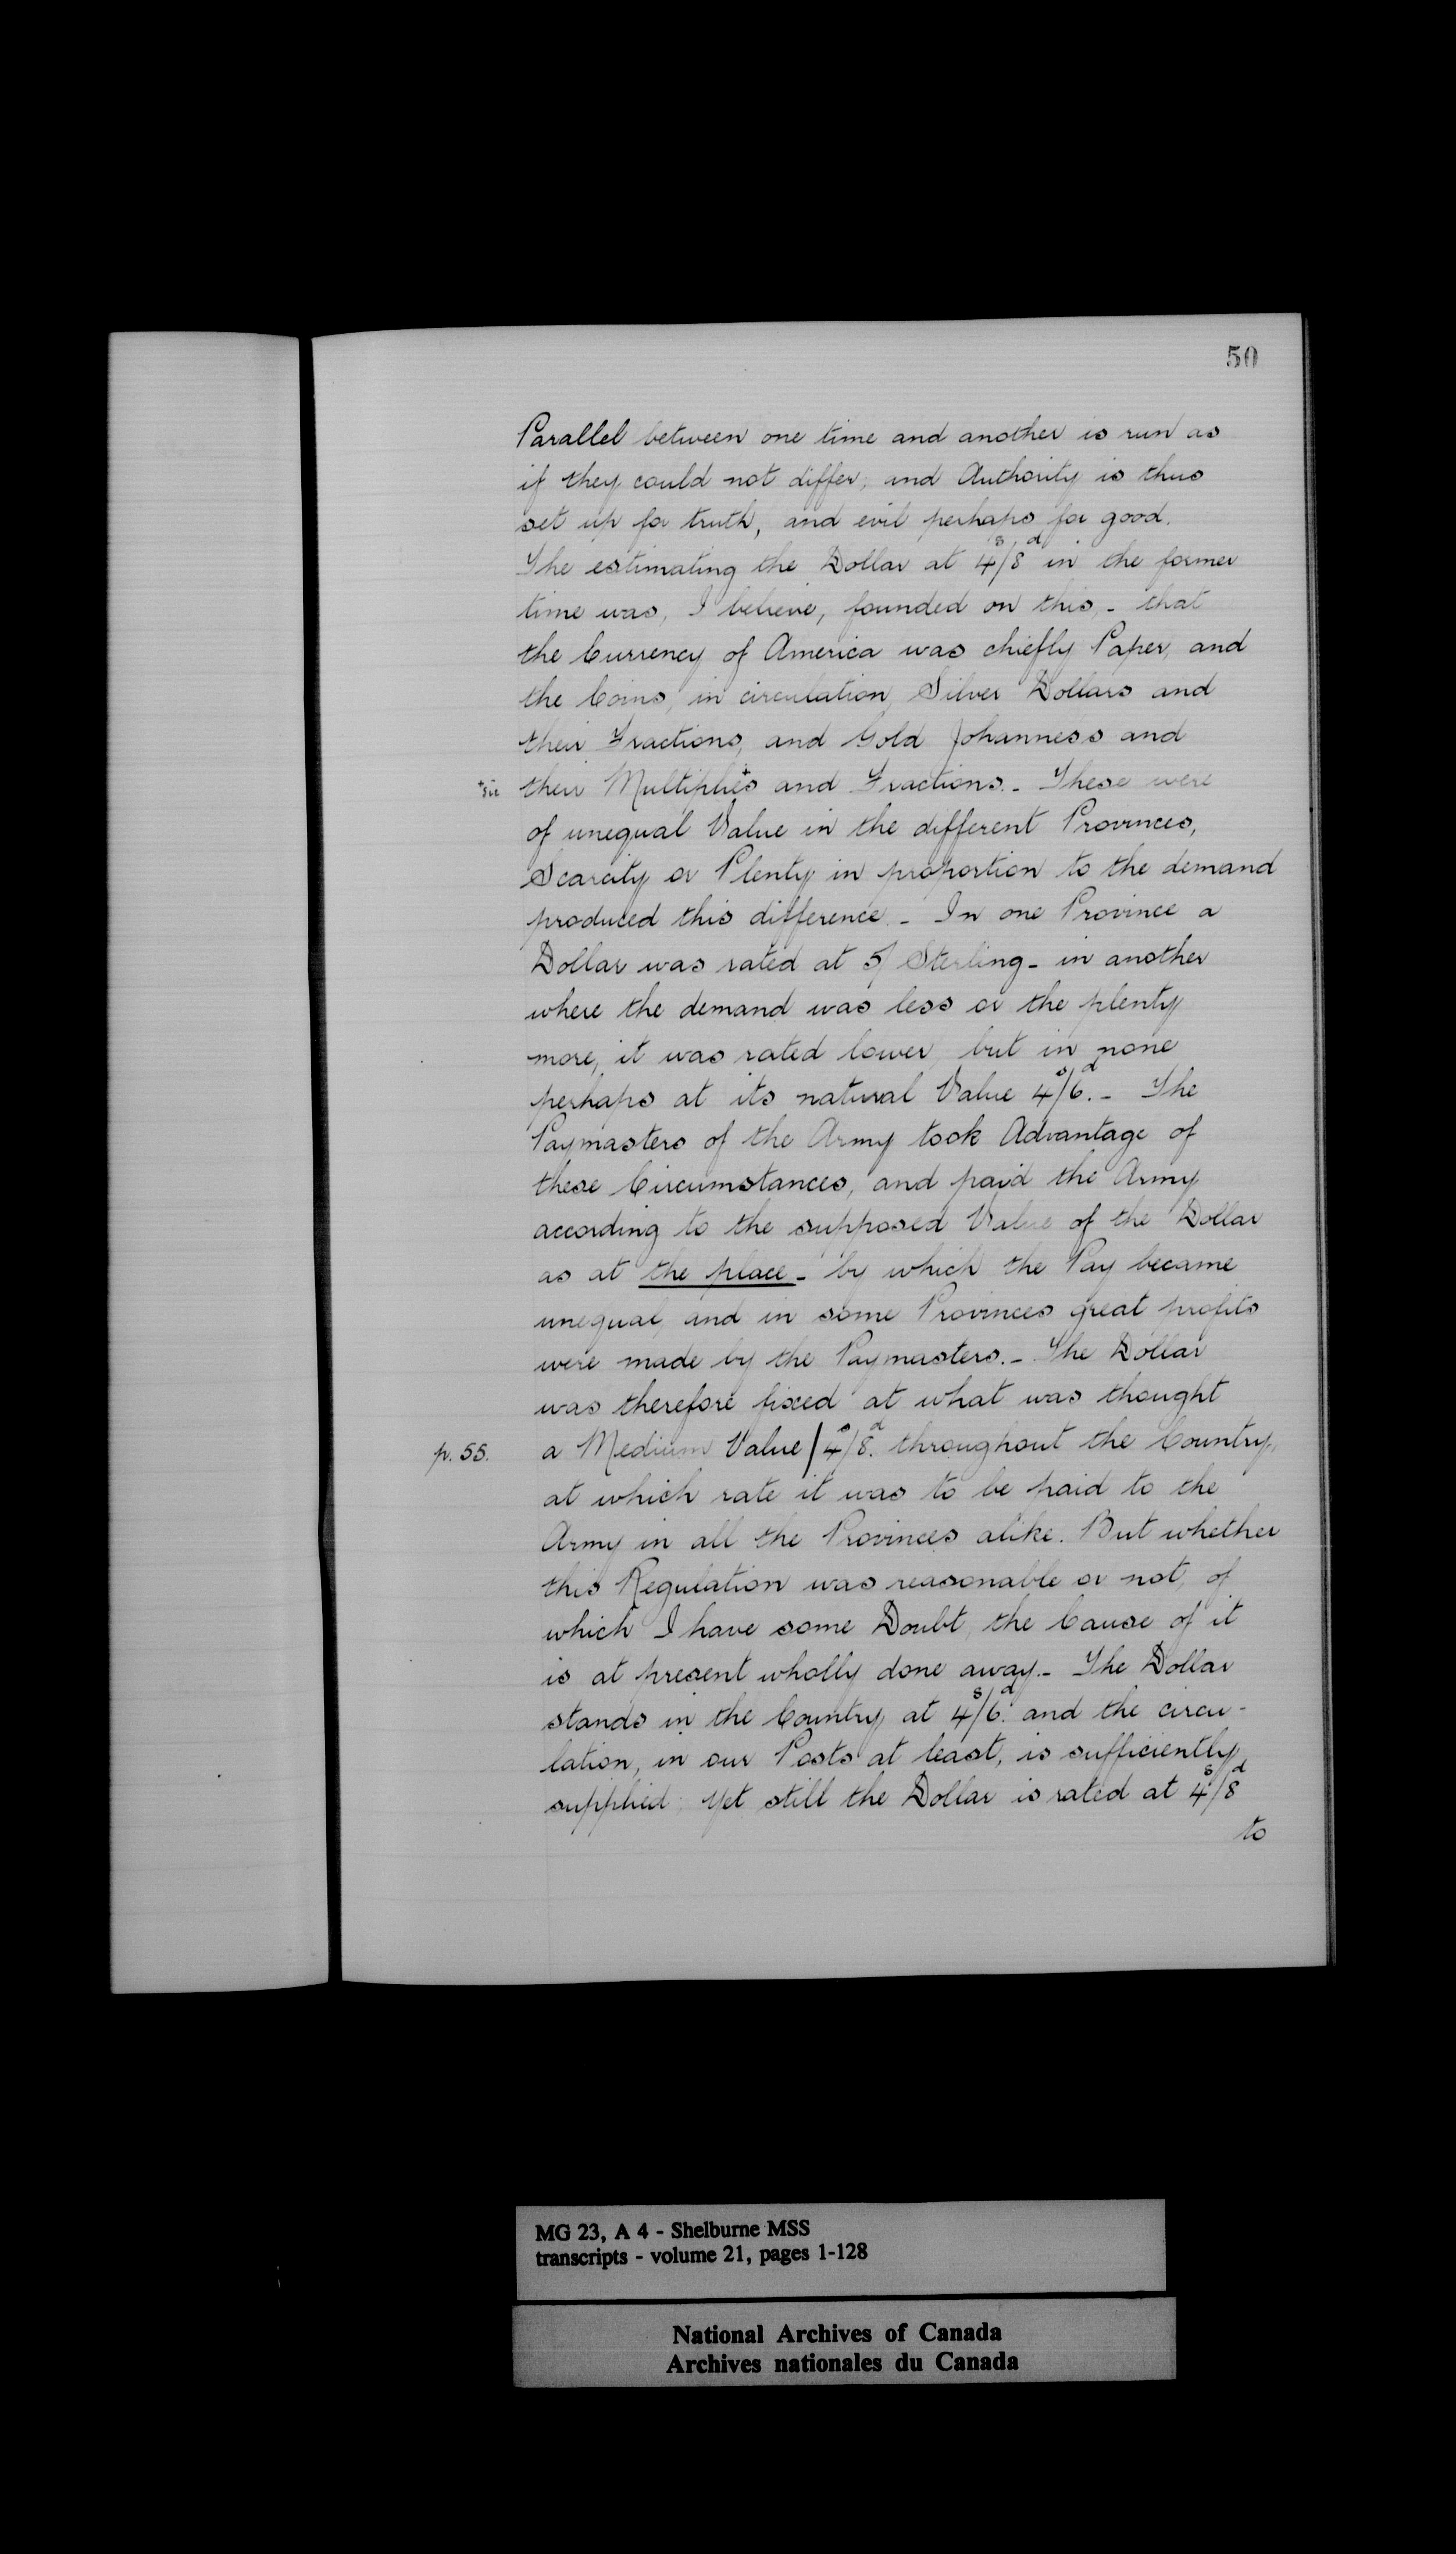 50
Parallel between one time and another is run as
if they could not differ; and Authority is thus
set up for truth, and evil perhaps for good.
The estimating the Dollar at 4ˢ/8ᵈ in the former
time was, I believe, founded on this, - that
the Currency of America was chiefly Paper, and
the Coins, in circulation, Silver Dollars and
their Fractions, and Gold Johanness and
+sic their Multiplies+ and Fractions. - These were
of unequal Value in the different Provinces,
Scarcity or Plenty in proportion to the demand
produced this difference. - In one Province a
Dollar was rated at 5/ Sterling - in another
where the demand was less or the plenty
more, it was rated lower, but in none
perhaps at its natural Value 4ˢ/6ᵈ. - The
Paymasters of the Army took Advantage of
these Circumstances, and paid the Army
according to the supposed Value of the Dollar
as at the place - by which the Pay became
unequal, and in some Provinces great profits
were made by the Paymasters. - The Dollar
was therefore fixed at what was thought
p. 55. a Medium Value | 4ˢ/8ᵈ. throughout the Country,
at which rate it was to be paid to the
Army in all the Provinces alike. But whether
this Regulation was reasonable or not, of
which I have some Doubt, the Cause of it
is at present wholly done away. - The Dollar
stands in the Country at 4ˢ/6ᵈ. and the circu-
lation, in our Posts at least, is sufficiently
supplied; yet still the Dollar is rated at 4ˢ/8ᵈ
to
MG 23, A 4 - Shelburne MSS
transcripts - volume 21, pages 1-128
National Archives of Canada
Archives nationales du Canada